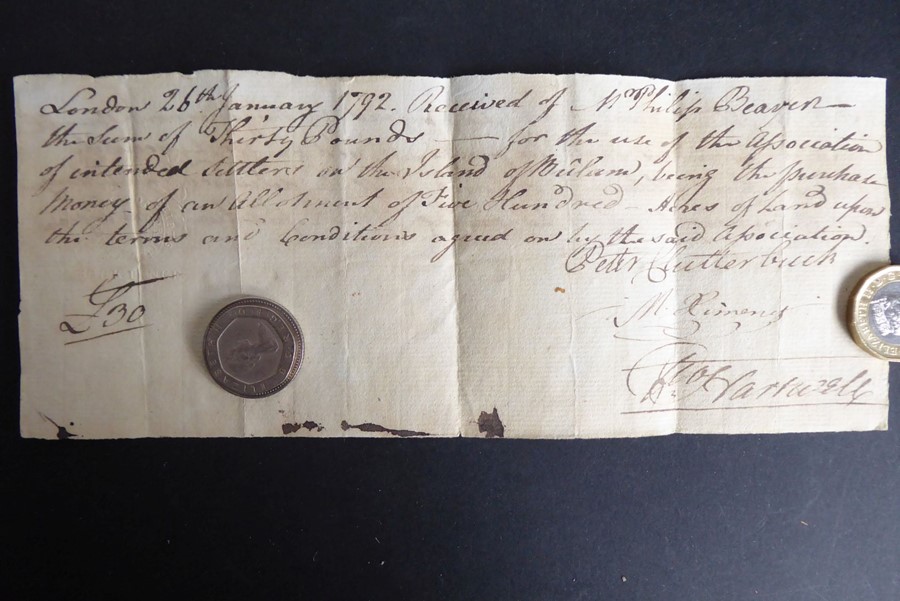 London 26th January 1792. Received of Mr Philip Beaver
the Sum of Thirty Pounds — for the use of the Association
of intended Settlers on the Island of Bulam, being the purchase
Money of an Allotment of Five Hundred – Acres of Land upon
the terms and Conditions agreed on by the said Association.
Peter Clutterbuck
£30
M. Ximenes
Hartwell
ELIZABETH II